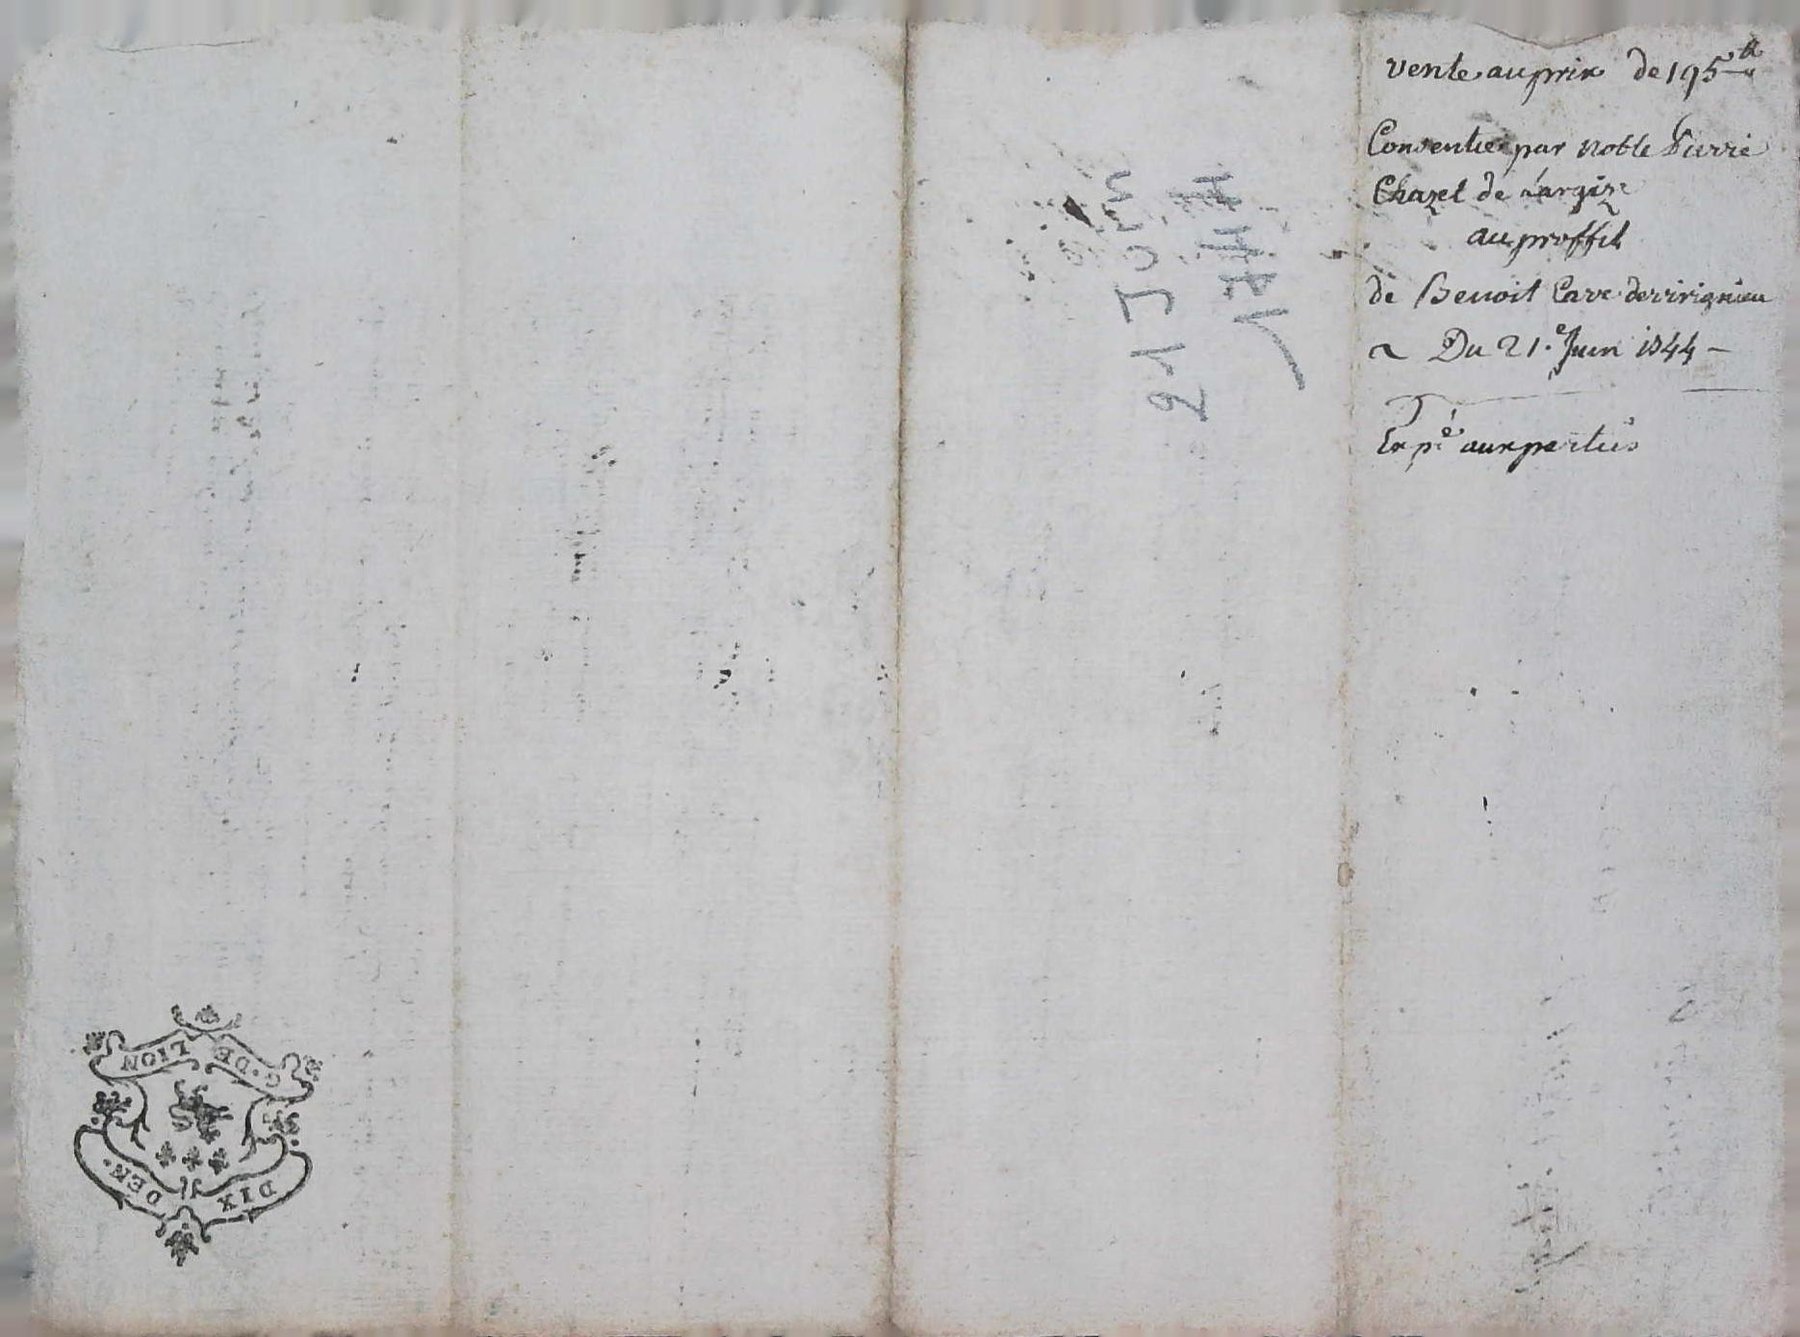 vente au prix de 195 ₶
Consentie par Noble Pierre
Chazel de
au proffit
de Benoit Cave de virignieu
Du 21.e Juin 1744
Expé aux parties
21 JUIN
1744
G. DE LION
DIX DEN.